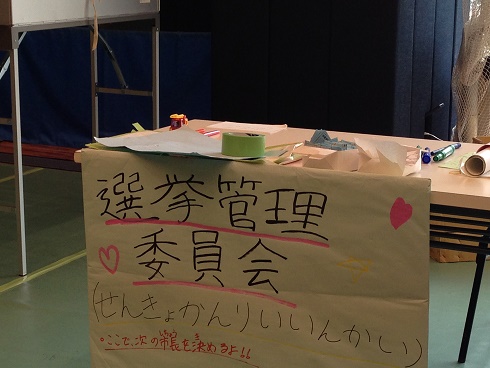 選挙管理
委員会
(せんきょかんりいいんかい)
・ここで、次の市長を決めるよ!!